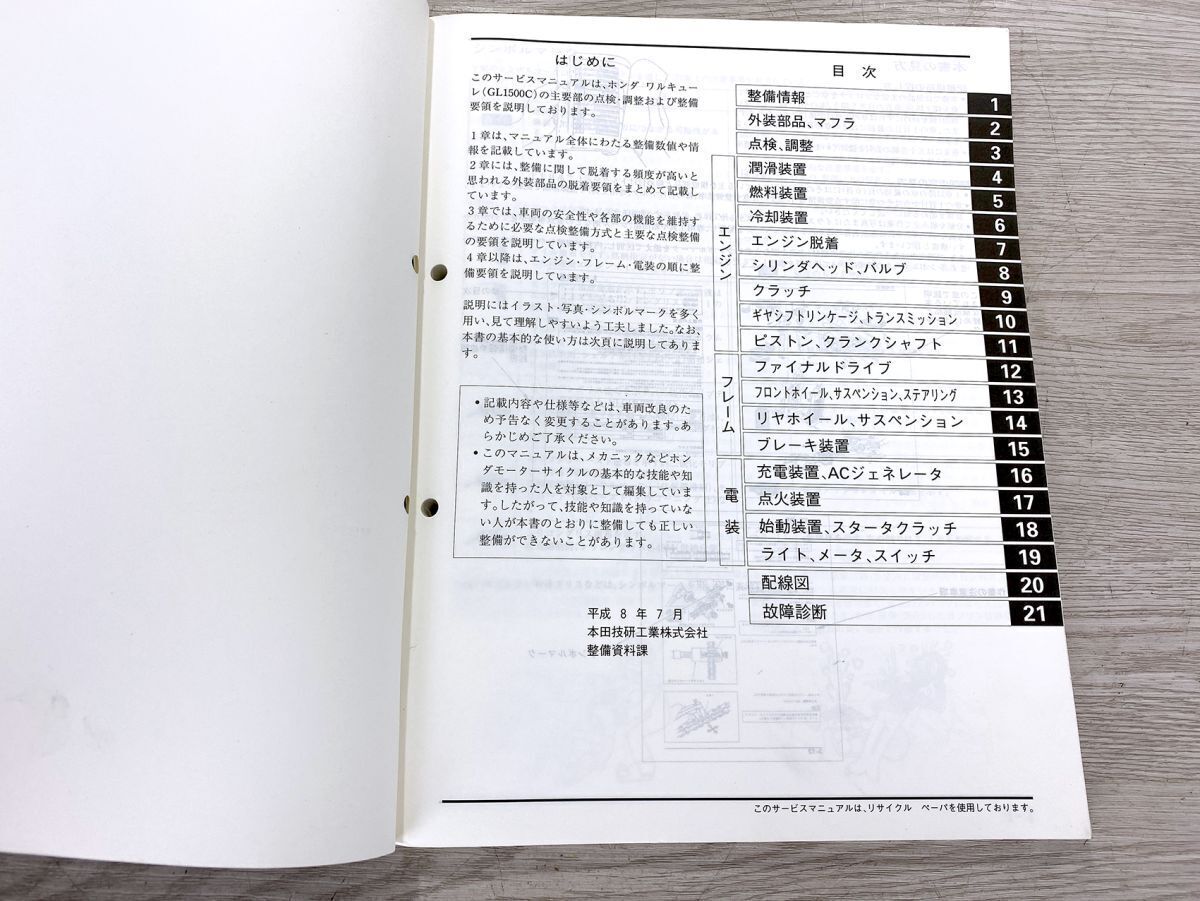 はじめに
このサービスマニュアルは、ホンダ ワルキュー
レ(GL1500C)の主要部の点検・調整および整備
要領を説明しております。
1章は、マニュアル全体にわたる整備数値や情
報を記載しています。
2章には、整備に関して脱着する頻度が高いと
思われる外装部品の脱着要領をまとめて記載し
ています。
3章では、車両の安全性や各部の機能を維持す
るために必要な点検整備方式と主要な点検整備
の要領を説明しています。
4章以降は、エンジン・フレーム・電装の順に整
備要領を説明しています。
説明にはイラスト・写真・シンボルマークを多く
用い、見て理解しやすいよう工夫しました。なお、
本書の基本的な使い方は次頁に説明してありま
す。
• 記載内容や仕様等などは、車両改良のた
め予告なく変更することがあります。あ
らかじめご了承ください。
• このマニュアルは、メカニックなどホン
ダモーターサイクルの基本的な技能や知
識を持った人を対象として編集していま
す。したがって、技能や知識を持っていな
い人が本書のとおりに整備しても正しい
整備ができないことがあります。
平成 8 年 7 月
本田技研工業株式会社
整備資料課
目 次
整備情報 1
外装部品、マフラ 2
点検、調整 3
エンジン
潤滑装置 4
燃料装置 5
冷却装置 6
エンジン脱着 7
シリンダヘッド、バルブ 8
クラッチ 9
ギヤシフトリンケージ、トランスミッション 10
ピストン、クランクシャフト 11
フレーム
ファイナルドライブ 12
フロントホイール、サスペンション、ステアリング 13
リヤホイール、サスペンション 14
ブレーキ装置 15
電装
充電装置、ACジェネレータ 16
点火装置 17
始動装置、スタータクラッチ 18
ライト、メータ、スイッチ 19
配線図 20
故障診断 21
このサービスマニュアルは、リサイクル ペーパを使用しております。